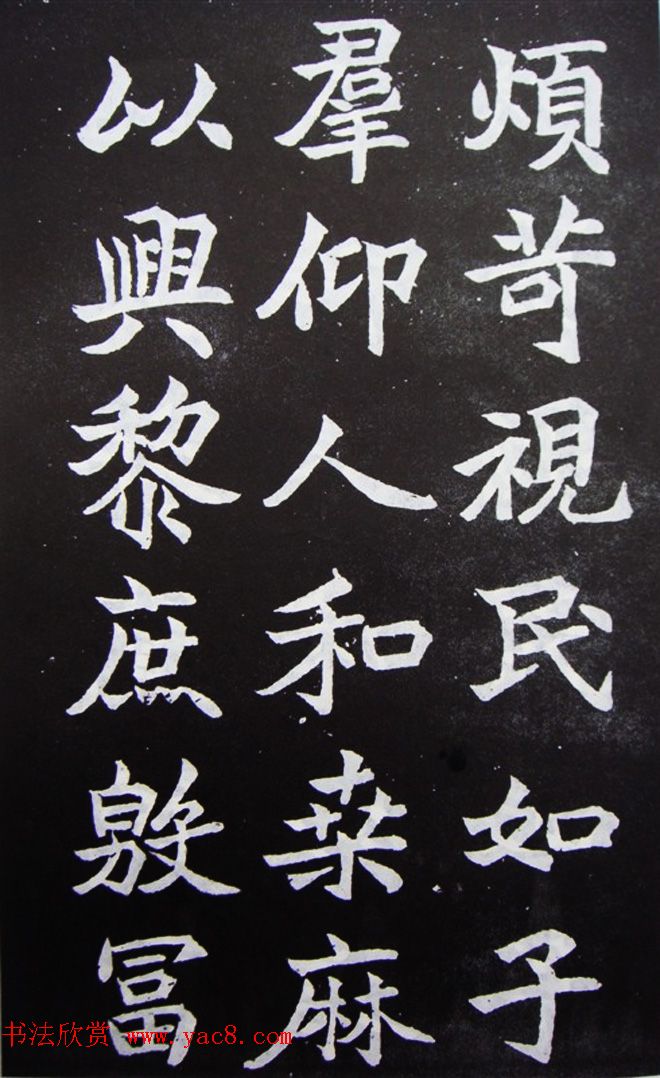 煩苛視民如子
羣仰人和桒麻
以興黎庶殷冨
书法欣赏 www.yac8.com